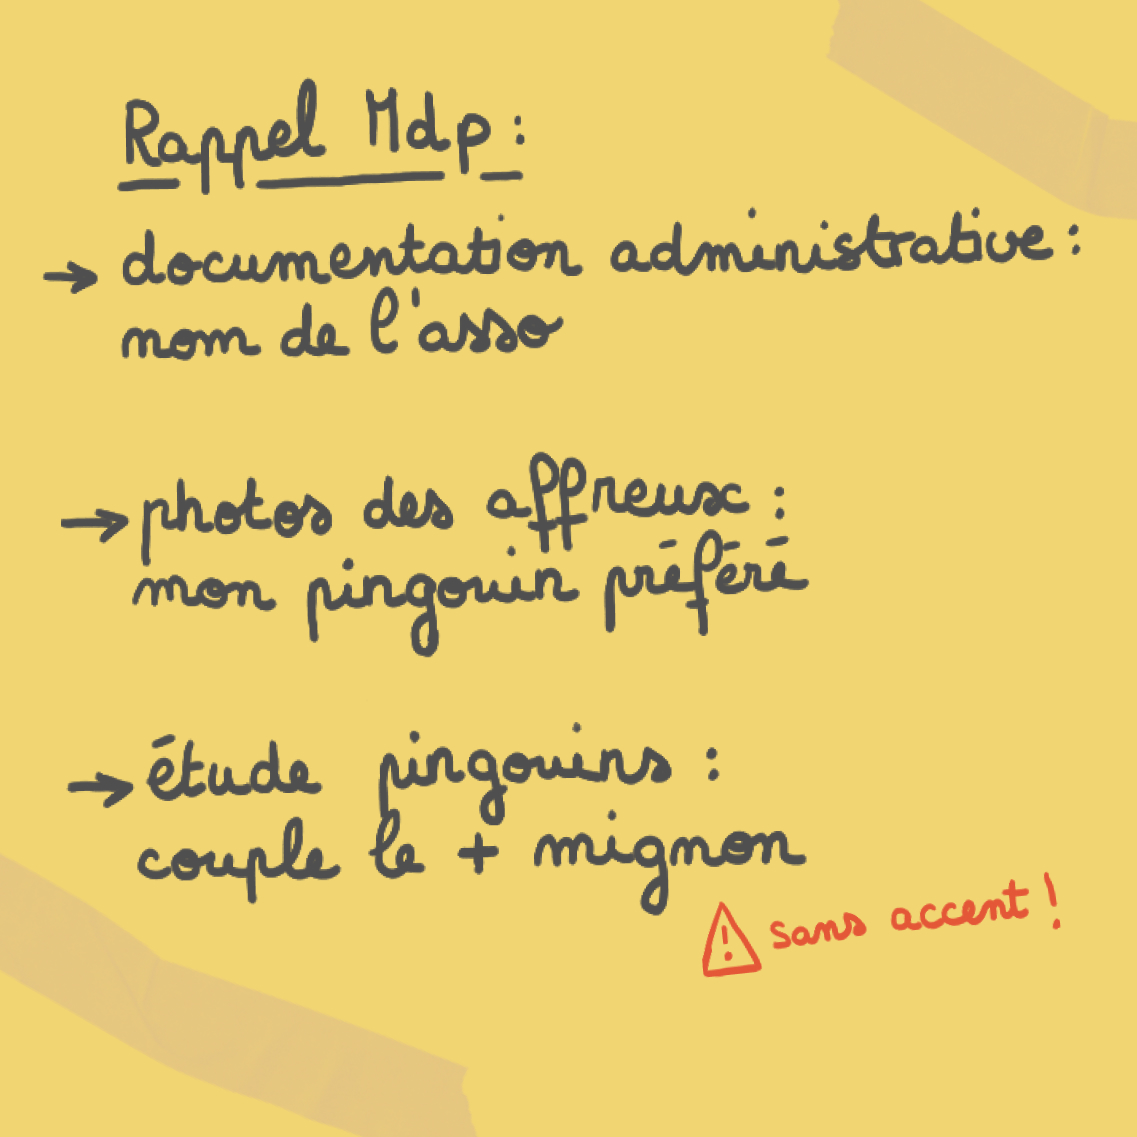 Rappel Mdp :
→ documentation administrative :
nom de l'asso
→ photos des affreux :
mon pingouin préféré
→ étude pingouins :
couple le + mignon
⚠ sans accent !